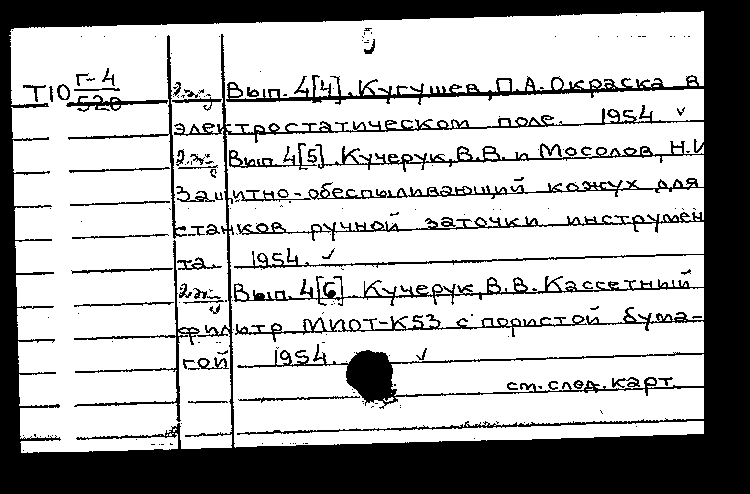 9
Т10 Г-4 Вып. 4[4]. Кугушев, П.А. Окраска в
520 электростатическом поле. 1954 ✓
2 эк. Вып. 4[5]. Кучерук, В.В. и Мосолов, Н.И
Защитно-обеспыливающий кожух для
станков ручной заточки инструмен
та. 1954. ✓
2 эк. Вып. 4[6]. Кучерук, В.В. Кассетный
фильтр МИОТ-К53 с пористой бума-
гой 1954. ✓
см. след. карт.